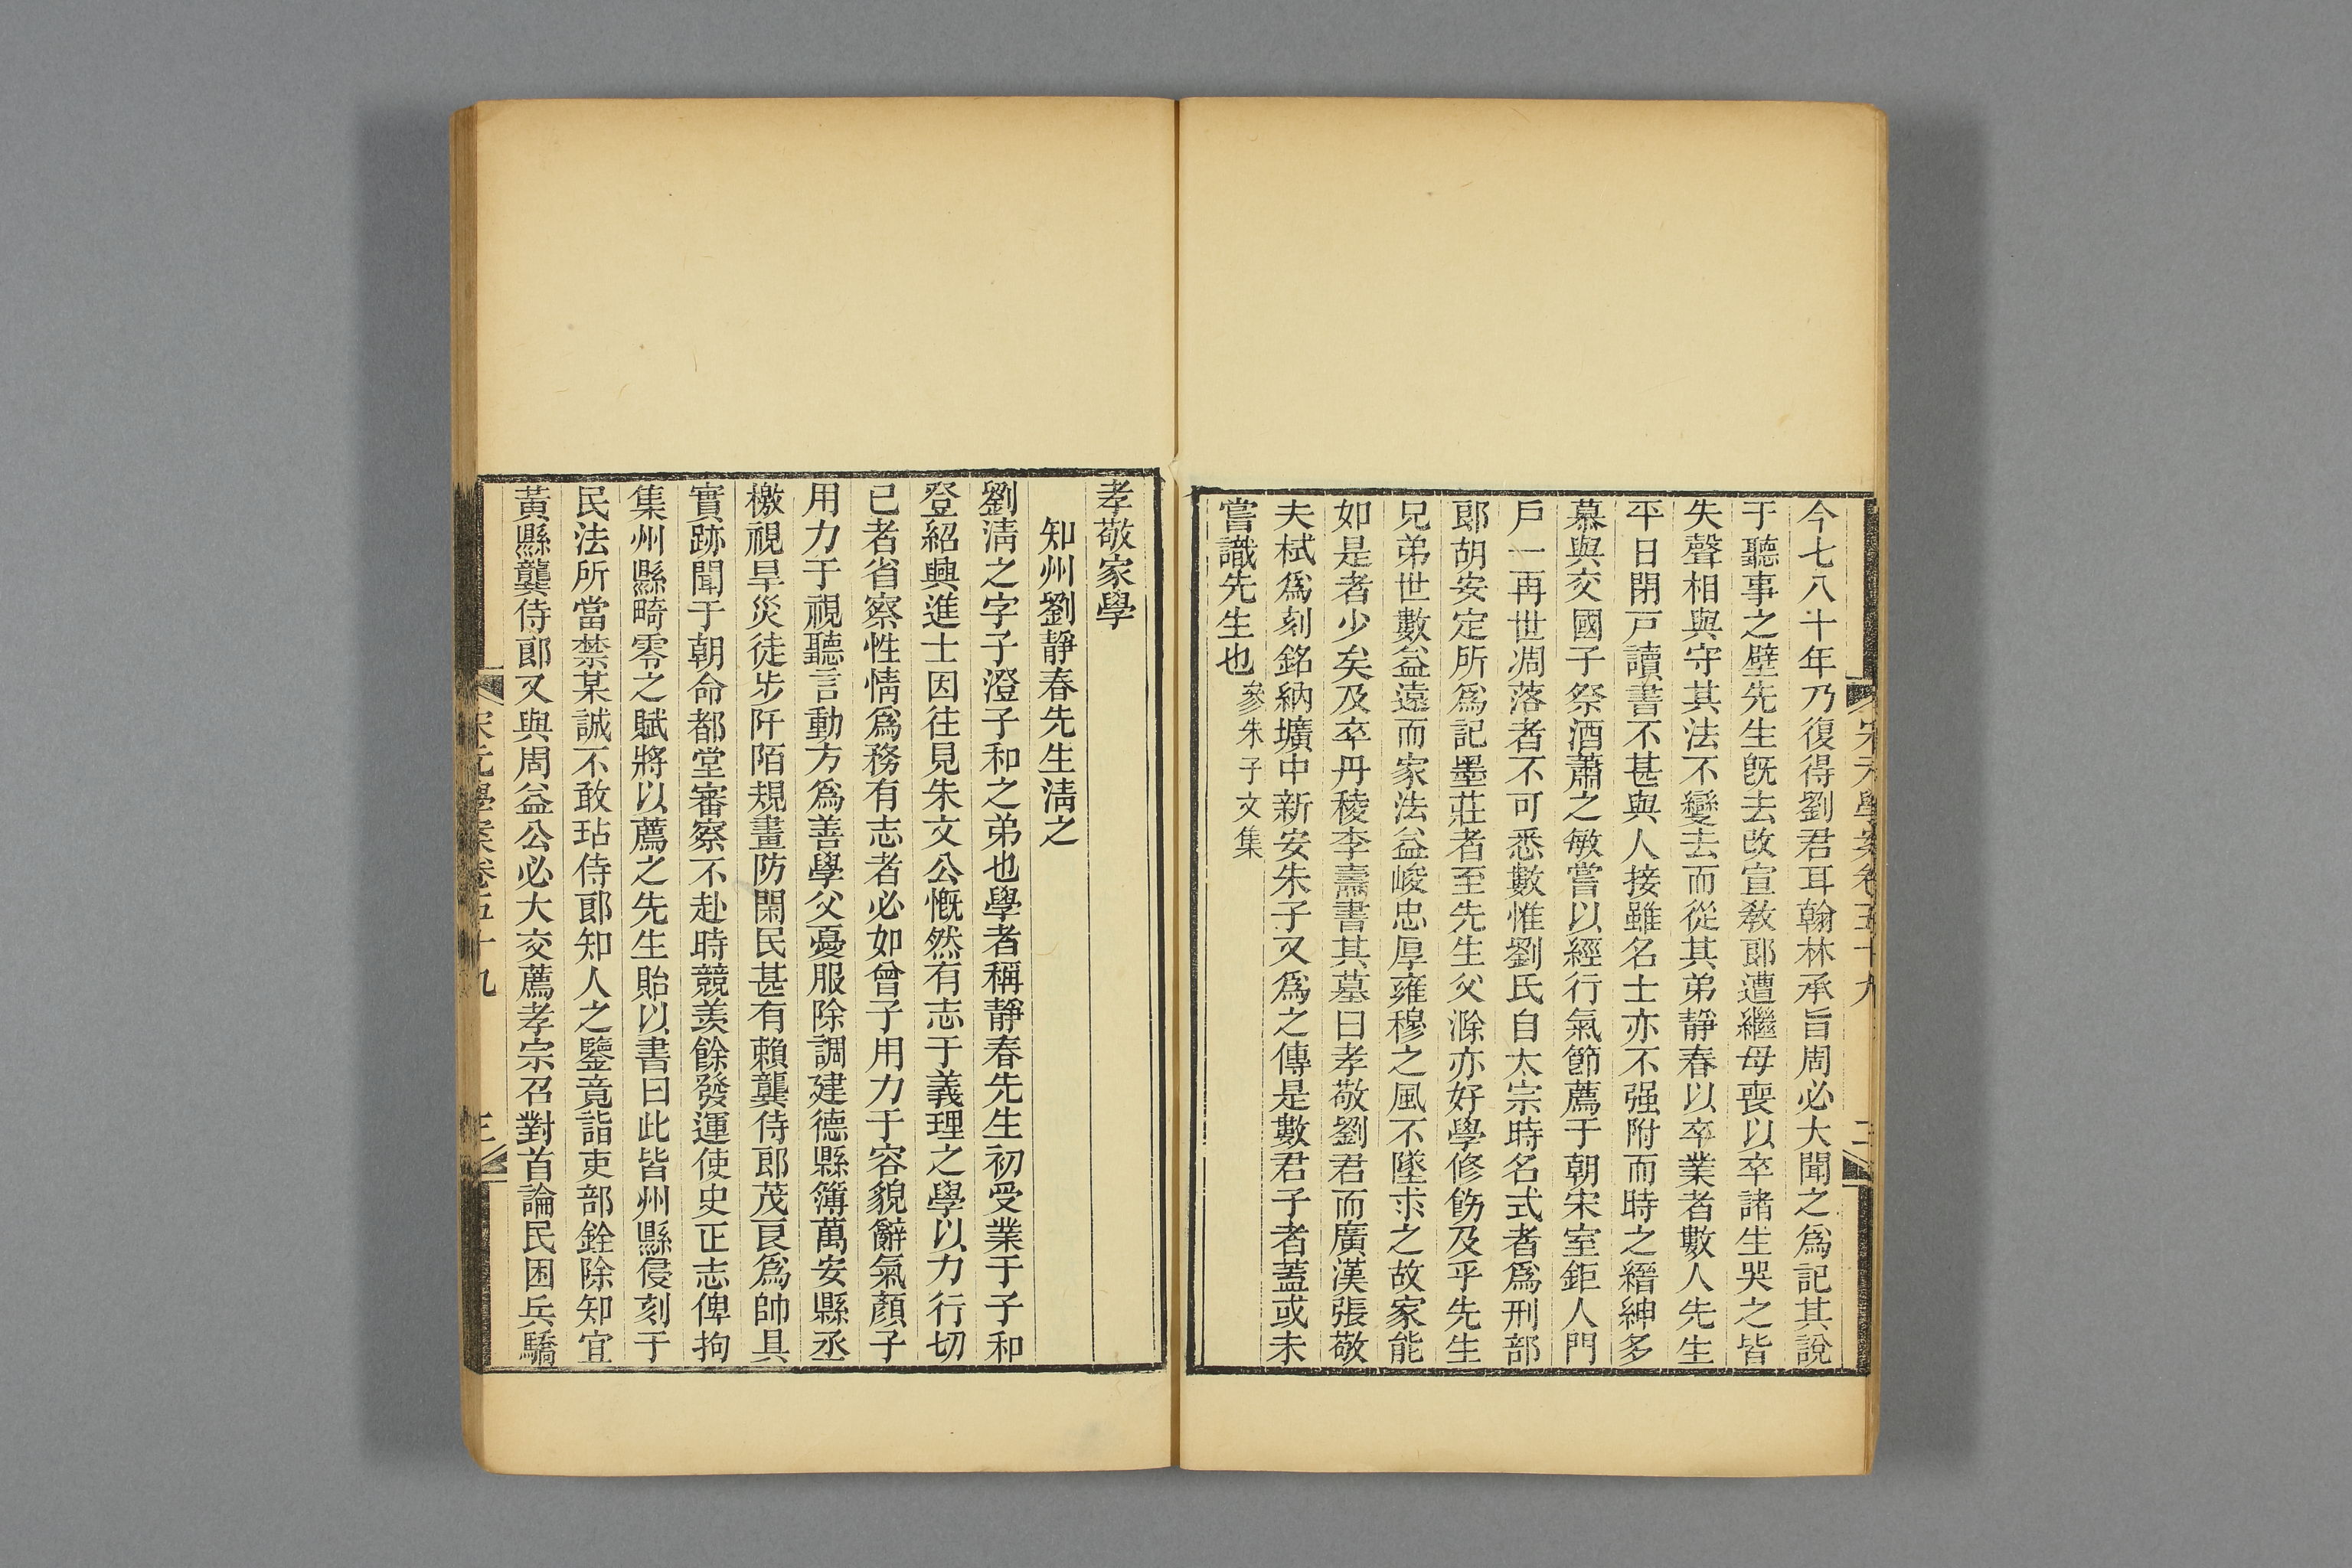 宋元學案卷五十九
二
今七八十年乃復得劉君耳翰林承旨周必大聞之爲記其說
于聽事之壁先生旣去改宣敎郞遭繼母喪以卒諸生哭之皆
失聲相與守其法不變去而從其弟靜春以卒業者數人先生
平日閉戸讀書不甚與人接雖名士亦不强附而時之縉紳多
慕與交國子祭酒蕭之敏嘗以經行氣節薦于朝宋室鉅人門
戸一再世凋落者不可悉數惟劉氏自太宗時名式者爲刑部
郞胡安定所爲記墨莊者至先生父滁亦好學修飭及乎先生
兄弟世數益遠而家法益峻忠厚雍穆之風不墜求之故家能
如是者少矣及卒丹稜李壽書其墓曰孝敬劉君而廣漢張敬
夫栻爲刻銘納壙中新安朱子又爲之傳是數君子者蓋或未
嘗識先生也參朱子文集
孝敬家學
知州劉靜春先生淸之
劉淸之字子澄子和之弟也學者稱靜春先生初受業于子和
登紹興進士因往見朱文公慨然有志于義理之學以力行切
己者省察性情爲務有志者必如曾子用力于容貌辭氣顏子
用力于視聽言動方爲善學父憂服除調建德縣簿萬安縣丞
檄視旱災徒步阡陌規畫防閑民甚有賴龔侍郞茂良爲帥具
實跡聞于朝命都堂審察不赴時競羨餘發運使史正志俾拘
集州縣畸零之賦將以薦之先生貽以書曰此皆州縣侵刻于
民法所當禁某誠不敢玷侍郞知人之鑒竟詣吏部銓除知宜
黃縣龔侍郞又與周益公必大交薦孝宗召對首論民困兵驕
宋元學案卷五十九
三